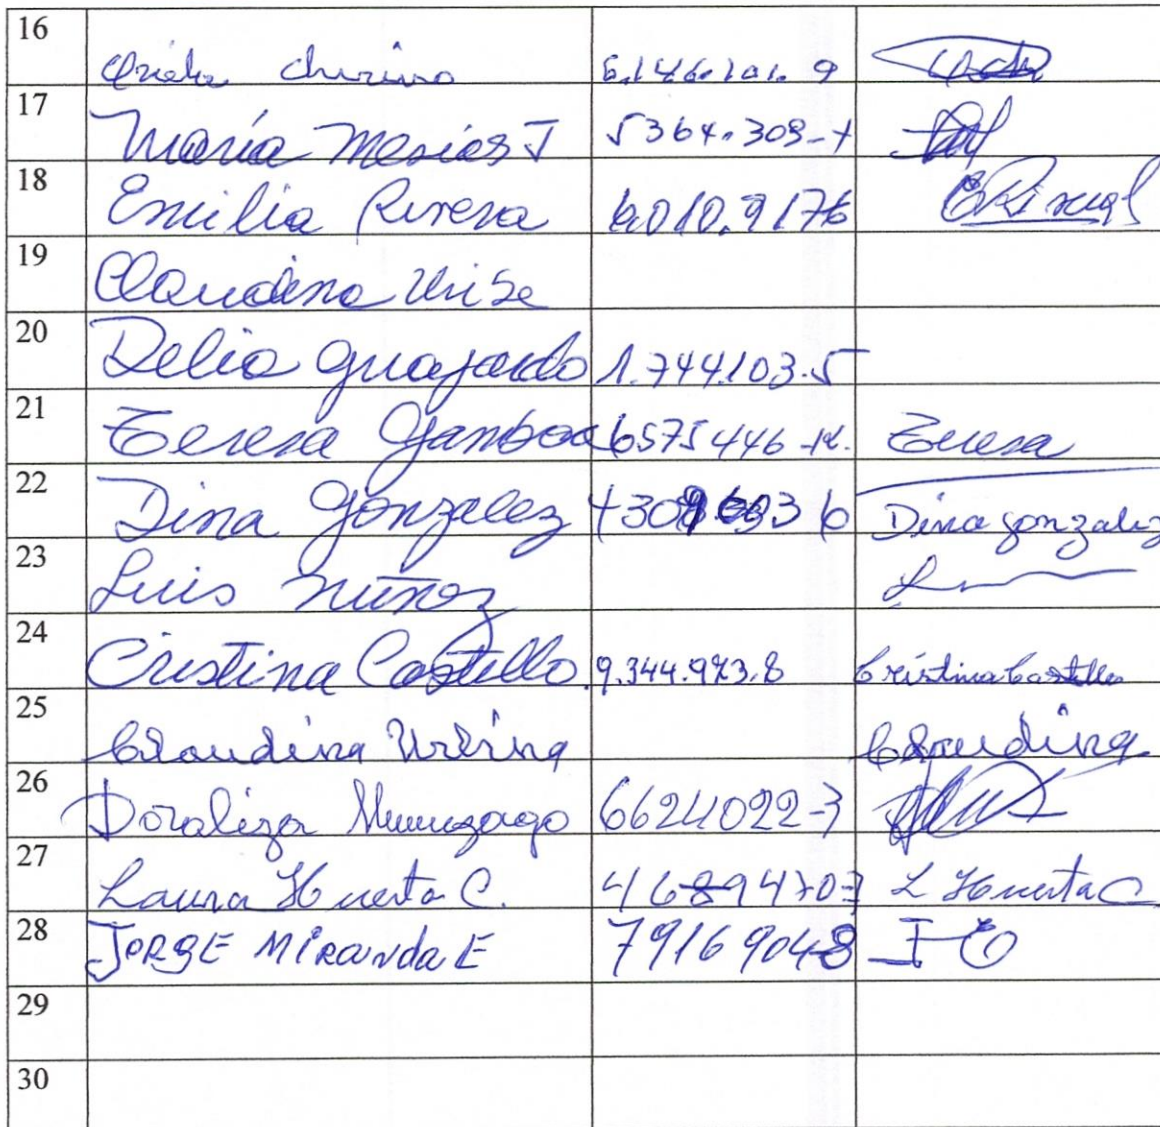 16
17 María Mesias J 5364.309-7
18 Emilia Rivera 6.010.9176
19 Claudina
20 Delia Guajardo 1.744.103.5
21 Teresa Gamboa 6575446-K. Teresa
22 Dina Gonzalez Dina Gonzalez
23 Luis Nuñez
24 Cristina Castillo 9.344.983.8 Cristina Castillo
25 Claudina Urbina Claudina
26 Doraliza 6624022-7
27 Laura Huerta C. 46894707 L Huerta C
28 JORGE MiRanda E 79169048
29
30